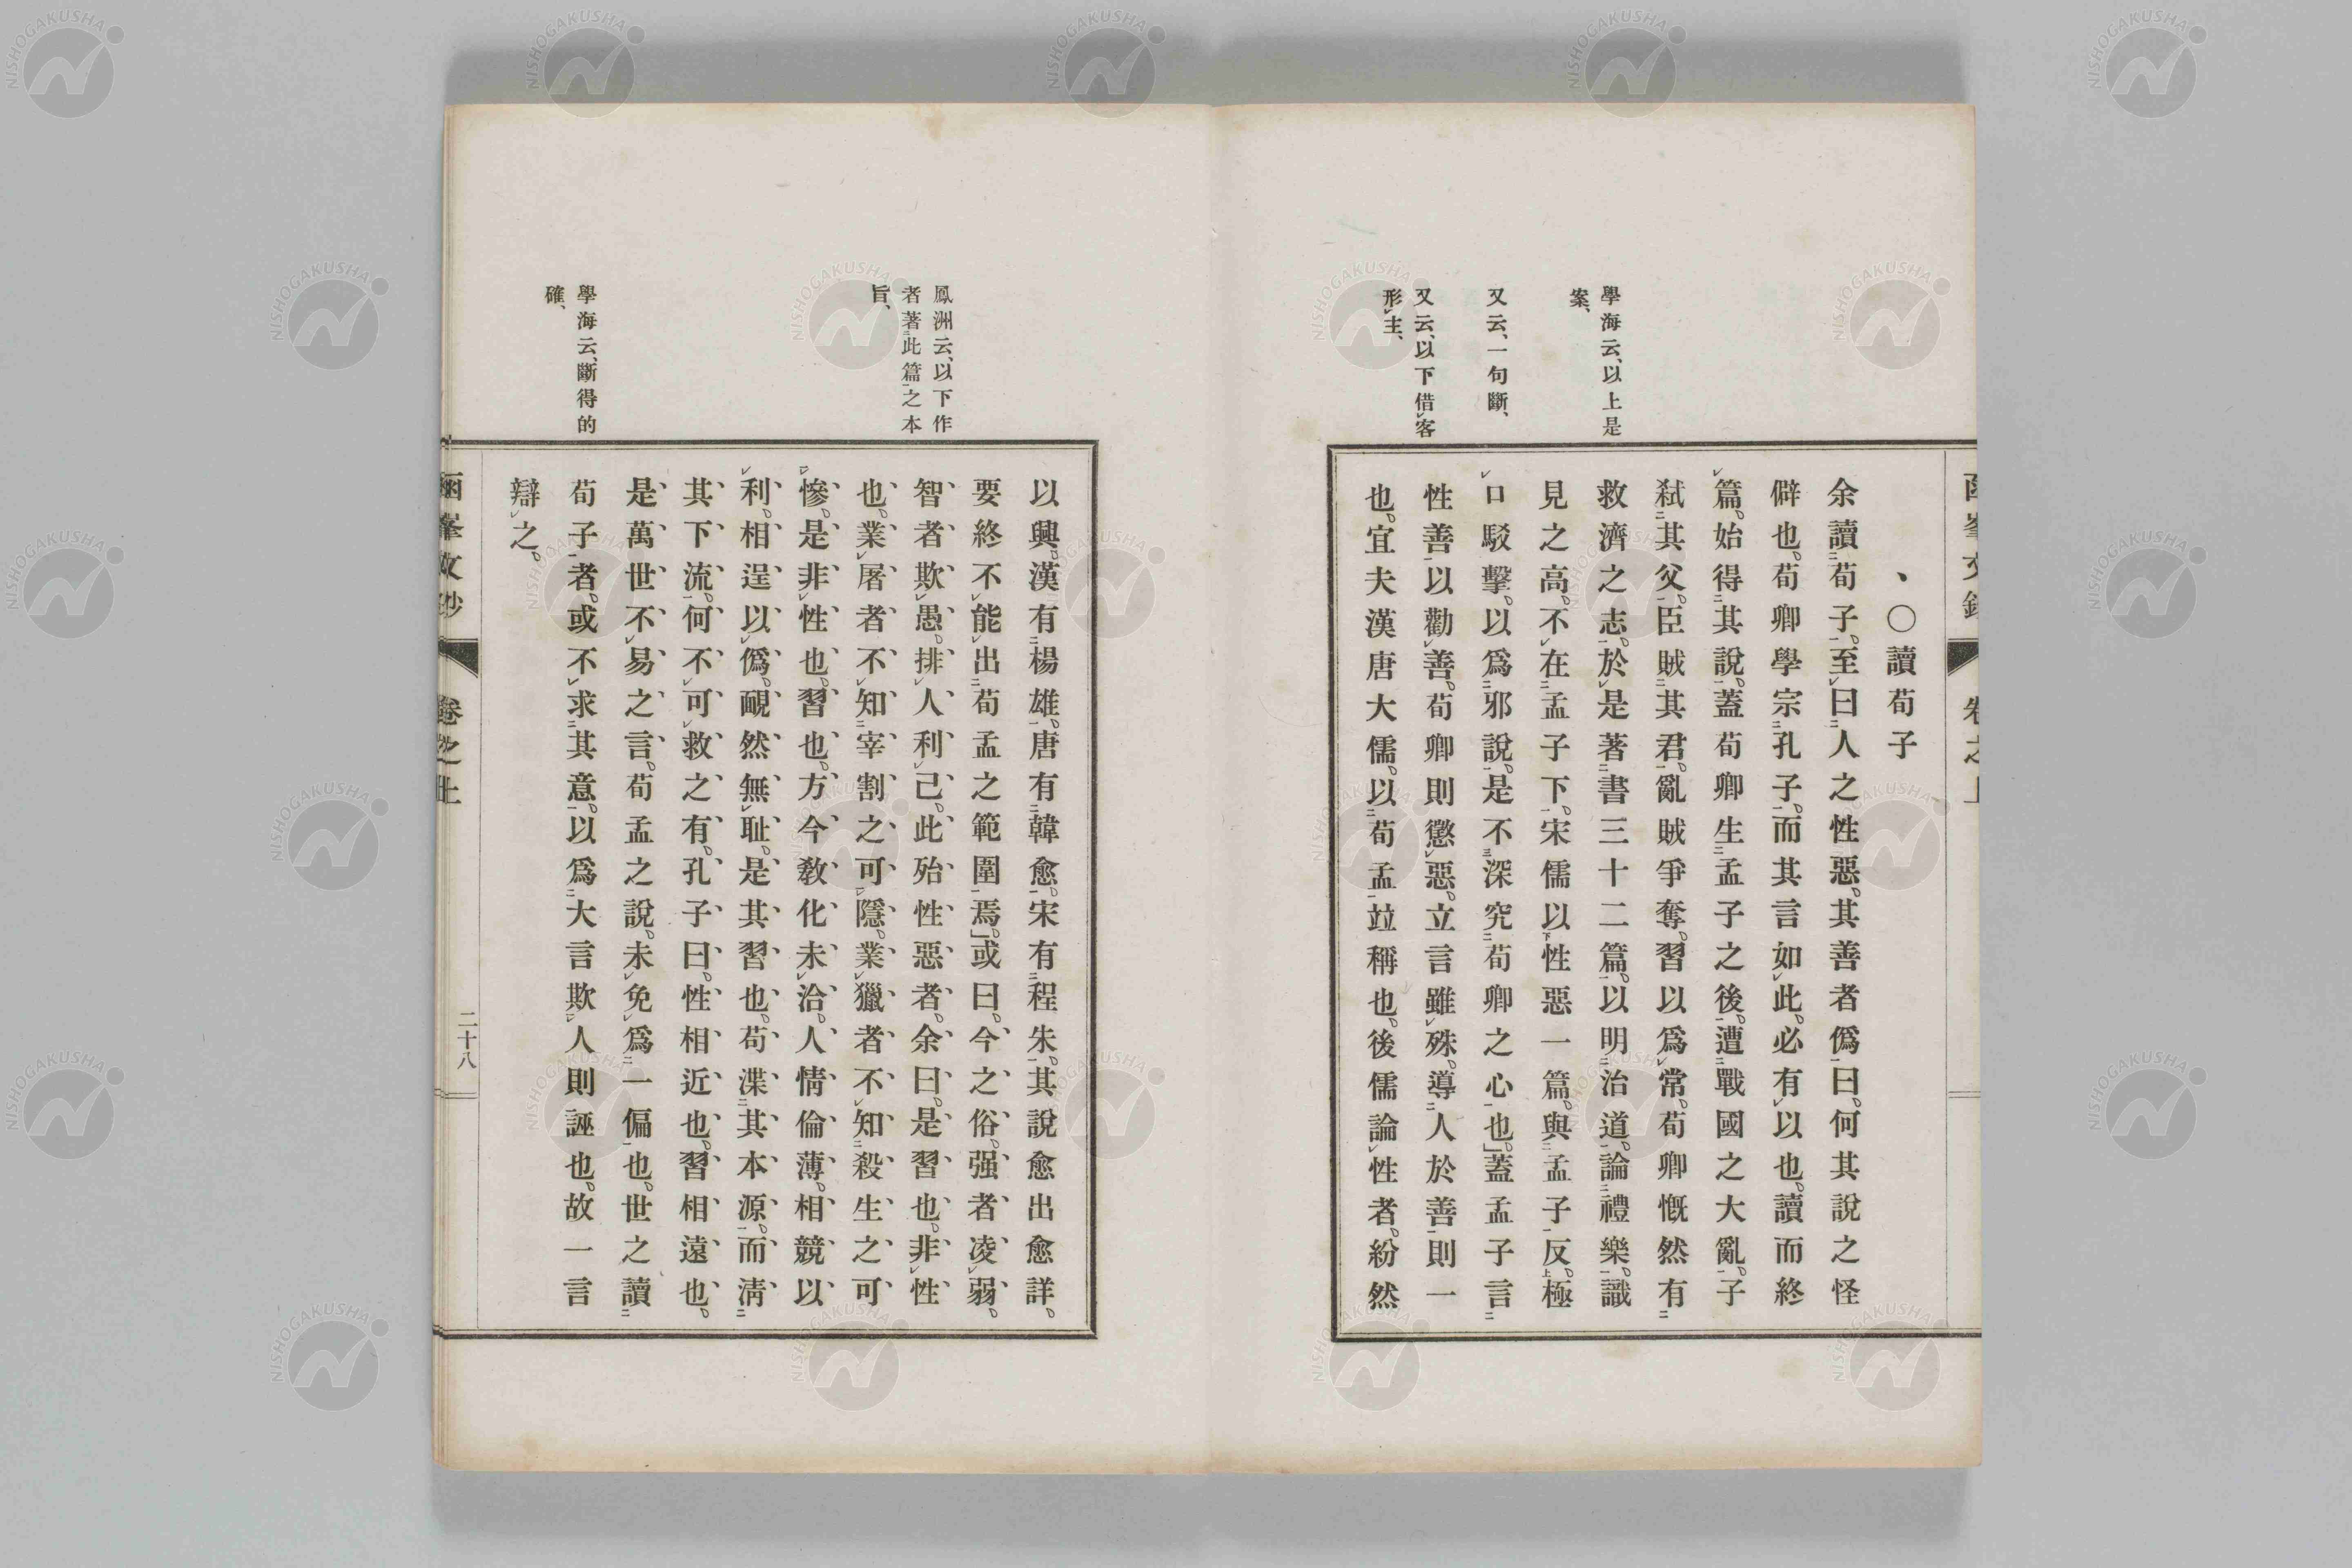 、〇讀荀子
余讀荀子。至曰人之性惡。其善者僞曰。何其說之怪
僻也。荀卿學宗孔子。而其言如此。必有以也。讀而終
篇。始得其說。蓋荀卿生孟子之後。遭戰國之大亂。子
弑其父。臣賊其君。亂賊爭奪。習以爲常。荀卿慨然有
救濟之志。於是著書三十二篇。以明治道。論禮樂。識
見之高。不在孟子下。宋儒以性惡一篇。與孟子反。極
口駁擊。以爲邪說。是不深究荀卿之心也。」蓋孟子言
性善以勸善。荀卿則懲惡。立言雖殊。導人於善則一
也。宜夫漢唐大儒。以荀孟竝稱也。後儒論性者。紛然
學海云、以上是
案、
又云、一句斷、
又云、以下借客
形主、
以興。漢有楊雄。唐有韓愈。宋有程朱。其說愈出愈詳。
要終不能出荀孟之範圍焉。」或曰。今之俗。强者凌弱。
智者欺愚。排人利己。此殆性惡者。余曰。是習也。非性
也。業屠者不知宰割之可隱。業獵者不知殺生之可
慘。是非性也。習也。方今敎化未洽。人情倫薄。相競以
利。相逞以僞。靦然無耻。是其習也。苟渫其本源。而淸
其下流。何不可救之有。孔子曰。性相近也。習相遠也。
是萬世不易之言。荀孟之說。未免爲一偏也。世之讀
荀子者。或不求其意。以爲大言欺人則誣也。故一言
辯之。
鳳洲云、以下作
者著此篇之本
旨、
學海云、斷得的
確、
卷之上
二十八